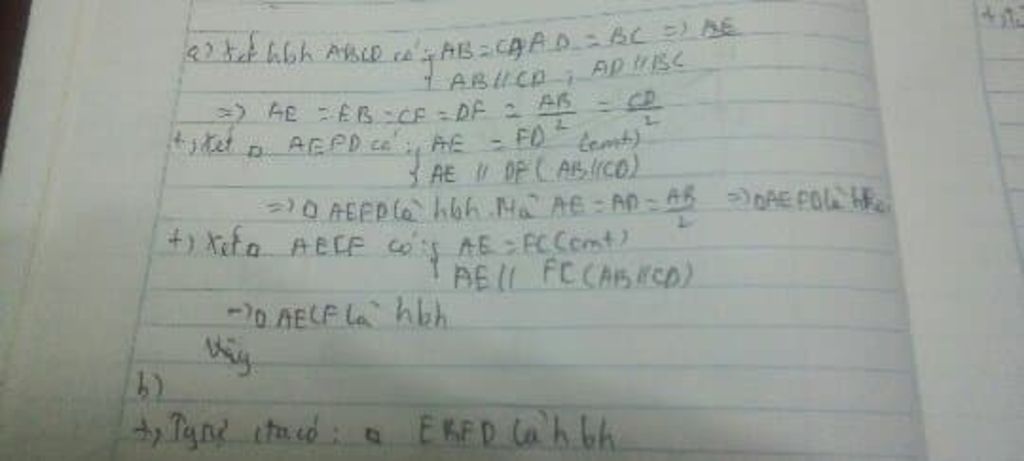 a) Xét hbh ABCD có: AB = CD, AD = BC => AE
AB // CD ; AD // BC
=> AE = EB = CF = DF = AB/2 = CD/2
+) Xét □ AEFD có: AE = FD (cmt)
AE // DF (AB//CD)
=> □ AEFD là hbh. Mà AE = AD = AB/2 => □AEFD là
+) Xét □ AECF có: AE = FC (cmt)
AE // FC (AB//CD)
=> □ AECF là hbh
Vậy
b)
+, ta có: □ EBFD là hbh